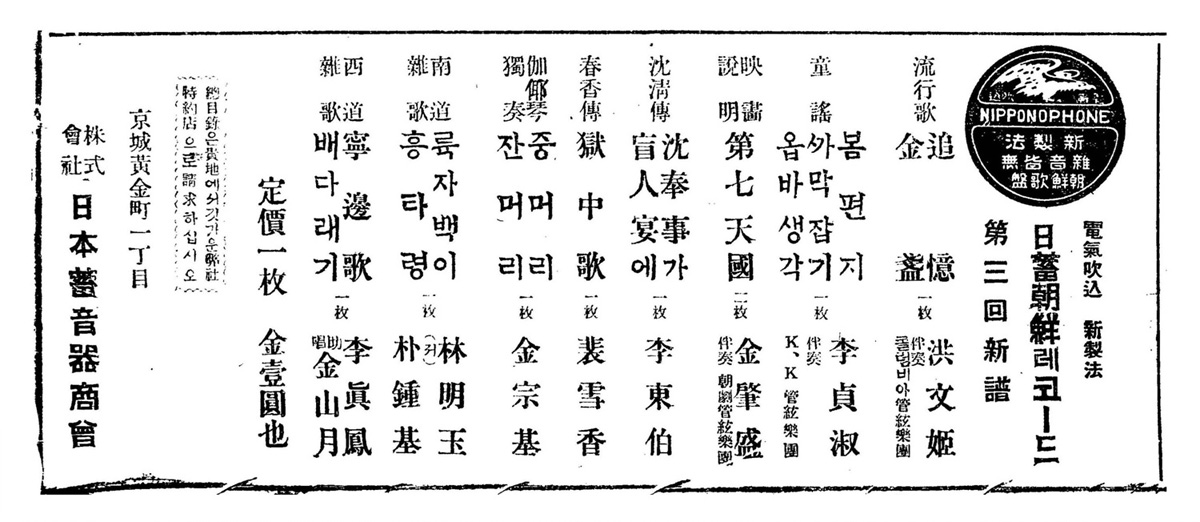 NIPPONOPHONE
新製法
雜音皆無
朝鮮歌盤
電氣吹込 新製法
日蓄朝鮮레코ー드
第三回新譜
流行歌
追憶
金盞
一枚
洪文姬
伴奏 콜럼비아管絃樂團
童謠
봄편지
ᄭᅡ막잡기
옵바생각
一枚
李貞淑
伴奏 K、K管絃樂團
映畵說明
第七天國
二枚
金肇盛
伴奏 朝劇管絃樂團
沈淸傳
沈奉事가
盲人宴에
一枚
李東伯
春香傳
獄中歌
一枚
裴雪香
伽倻琴獨奏
중머리
잔머리
一枚
金宗基
南道雜歌
륙자백이
흥타령
一枚
林明玉
朴鍾基
西道雜歌
寧邊歌
배다래기
一枚
李眞鳳
助唱 金山月
定價一枚 金壹圓也
總目錄은貴地에서갓가운弊社
特約店으로請求하십시오
京城黃金町一丁目
株式會社 日本蓄音器商會